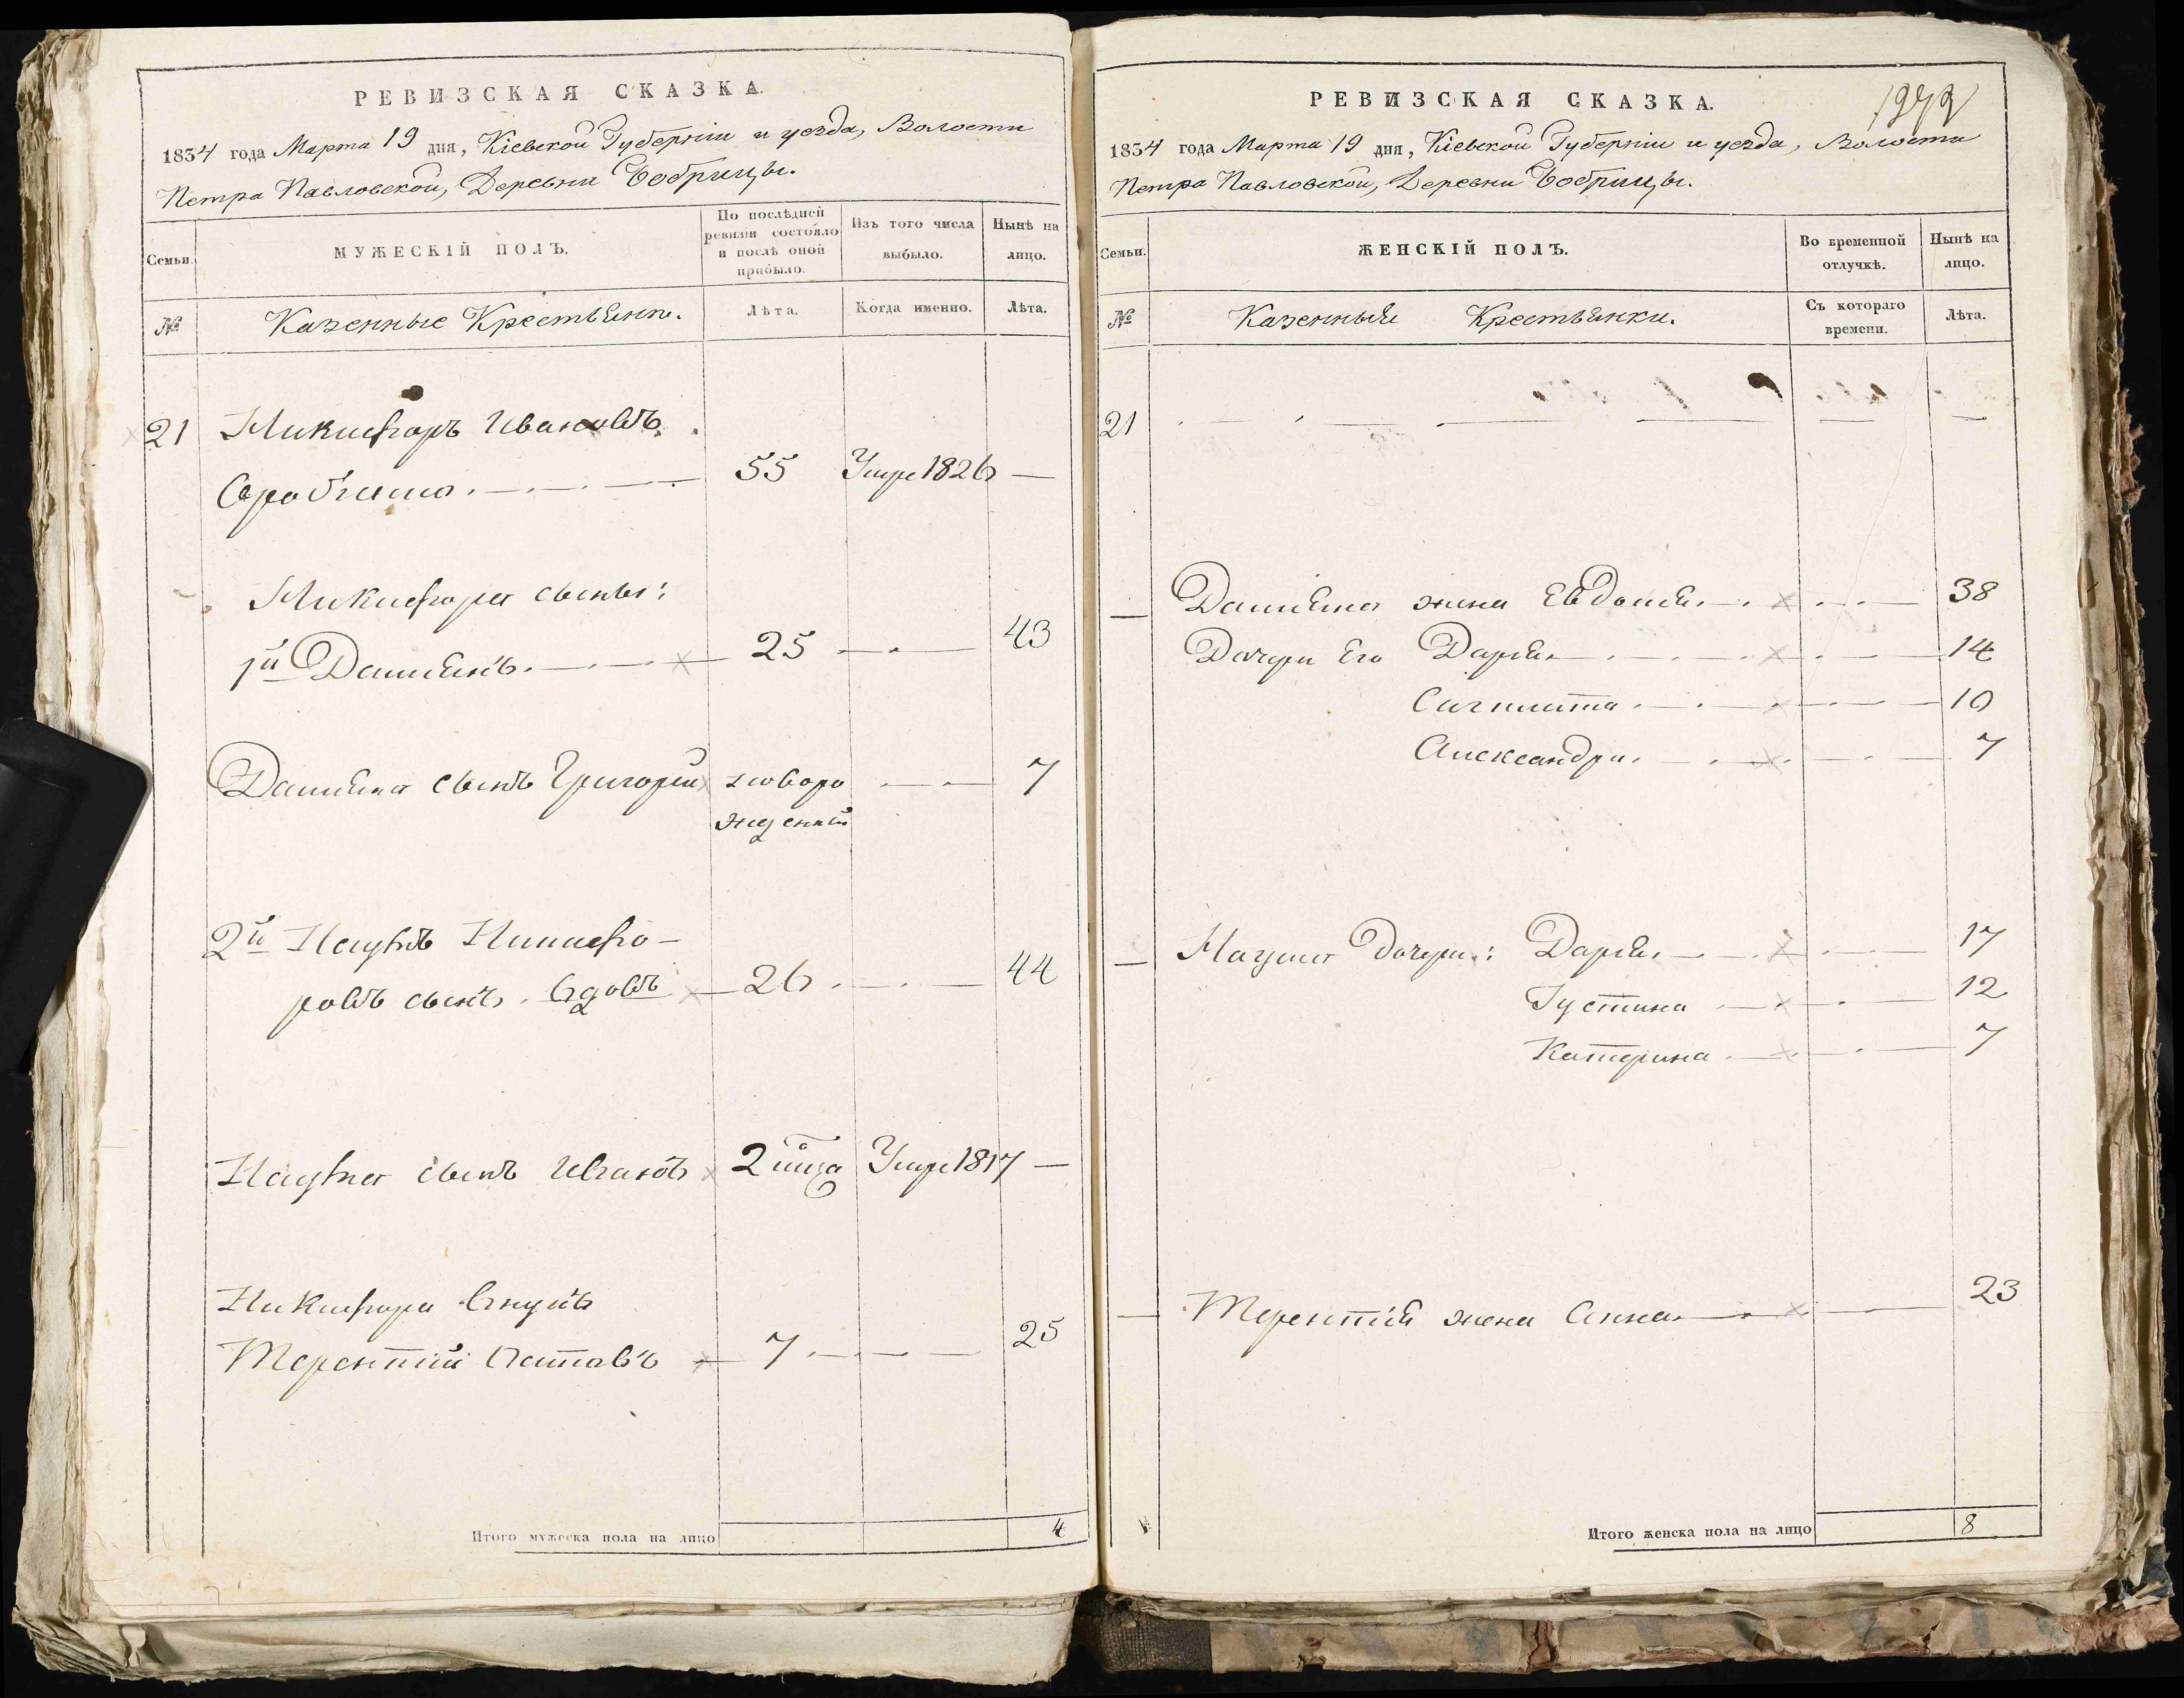 РЕВИЗСКАЯ СКАЗКА.
1834 года Марта 19 дня, Кіевской Губерніи и уезда, Волости
Петра Павловской, Деревни Бобрицы.
Семьи.
МУЖЕСКІЙ ПОЛЪ.
По послѣдней ревизіи состояло и послѣ оной прибыло.
Изъ того числа выбыло.
Нынѣ на лицо.
№
Казенные Крестьяне.
Лѣта.
Когда именно.
Лѣта.
21 Никифоръ Ивановъ
55 Умре 1826 —
Никифора сыны:
1й Даміянъ. 25 43
Даміяна сынъ Григорій новоро 7
жденный
2й Наумъ Никифо-
ровъ сынъ. Вдовъ 26 44
Наума сынъ Иванъ 2 мца Умре 1817 —
Никифора внукъ
Терентій 7 25
Итого мужеска пола на лицо 4
РЕВИЗСКАЯ СКАЗКА.
1834 года Марта 19 дня, Кіевской Губерніи и уезда, Волости
Петра Павловской, Деревни Бобрицы.
Семьи.
ЖЕНСКІЙ ПОЛЪ.
Во временной отлучкѣ.
Нынѣ на лицо.
№
Казенныя Крестьянки.
Съ котораго времени.
Лѣта.
21
Даміяна жена Евдокія 38
Дочери Его Дарія 14
10
Александра 7
Наума дочери: Дарія 17
Густина 12
Катерина 7
Терентія жена Анна 23
Итого женска пола на лицо 8